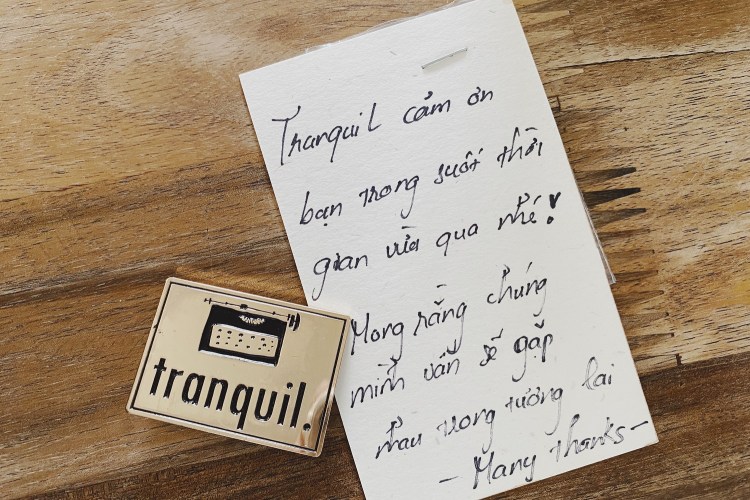 Tranquil cảm ơn
bạn trong suốt thời
gian vừa qua nhé!
Mong rằng chúng
mình vẫn sẽ gặp
nhau trong tương lai
- Many thanks -
tranquil.